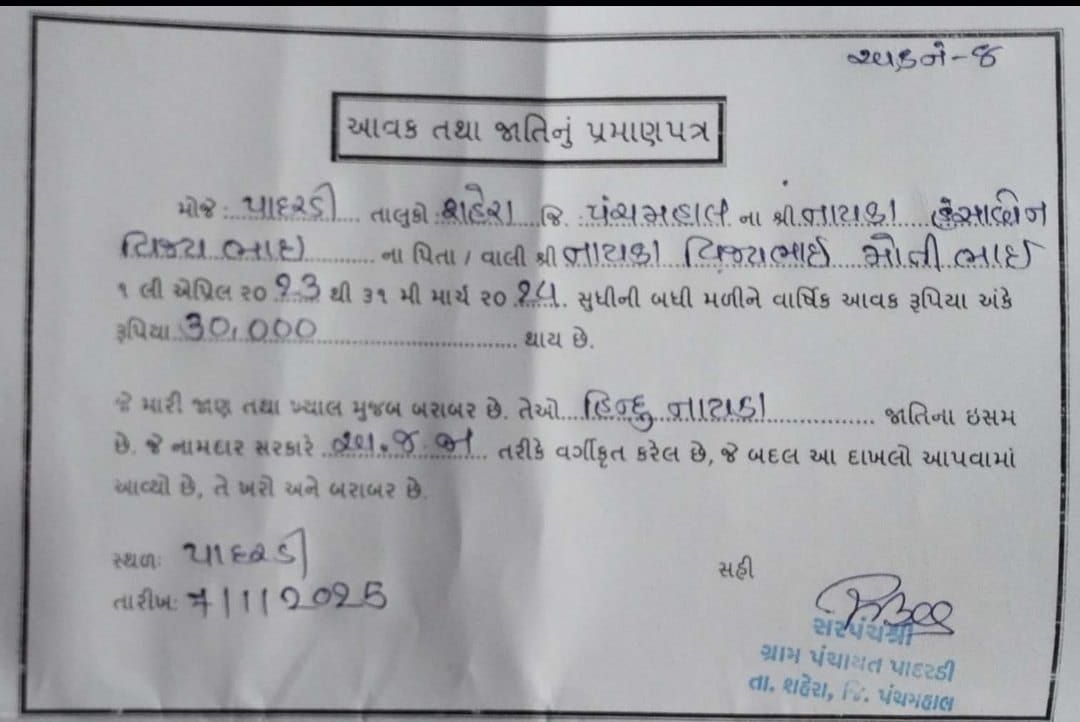 આવક તથા જાતિનું પ્રમાણપત્ર
મોજે : પાદરડી તાલુકો : શહેરા જિ. પંચમહાલ ના શ્રી નાયકા
વિજયભાઇ ના પિતા / વાલી શ્રી નાયકા વિજયભાઇ મોતીભાઇ
૧ લી એપ્રિલ ૨૦ 23 થી ૩૧ મી માર્ચ ૨૦ 24 સુધીની બધી મળીને વાર્ષિક આવક રૂપિયા અંકે
રૂપિયા 30,000 થાય છે.
જે મારી જાણ તથા ખ્યાલ મુજબ બરાબર છે. તેઓ હિન્દુ નાયકા જાતિના ઇસમ
છે. જે નામદાર સરકારે અ.જ.જા તરીકે વર્ગીકૃત કરેલ છે, જે બદલ આ દાખલો આપવામાં
આવ્યો છે, તે ખરો અને બરાબર છે.
સ્થળ: પાદરડી
તારીખ: 7/1/2025
સહી
સરપંચશ્રી
ગ્રામ પંચાયત પાદરડી
તા. શહેરા, જિ. પંચમહાલ